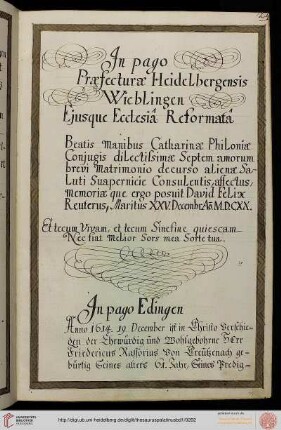 In pago
Præfecturæ Heidelbergensis
Wieblingen
Ejusque Ecclesiâ Reformatâ
Beatis Manibus Catharinæ Philoniæ
Conjugis dilectissimæ Septem annorum
brevi Matrimonio decurso alienæ Sa-
luti Suaperniciè Consulentis, affectus,
Memoriæque ergo posuit David Felix
Reuterus, Maritus XXV. Decembr. Aõ M.D.CXX.
Et tecum Vivam, et tecum Sine fine quiescam
Nec fiat Melior Sors mea Sorte tua.
In pago Edingen
Anno 1614. 19 December ist in Christo Verschie-
den der Ehrwürdig und Wohlgebohrne Herr
Friedericus von Creützenach ge-
bürtig Seines alters 61. Jahr, Seines Predig-
http://digi.ub.uni-heidelberg.de/diglit/thesauruspalatinusbd1/0282